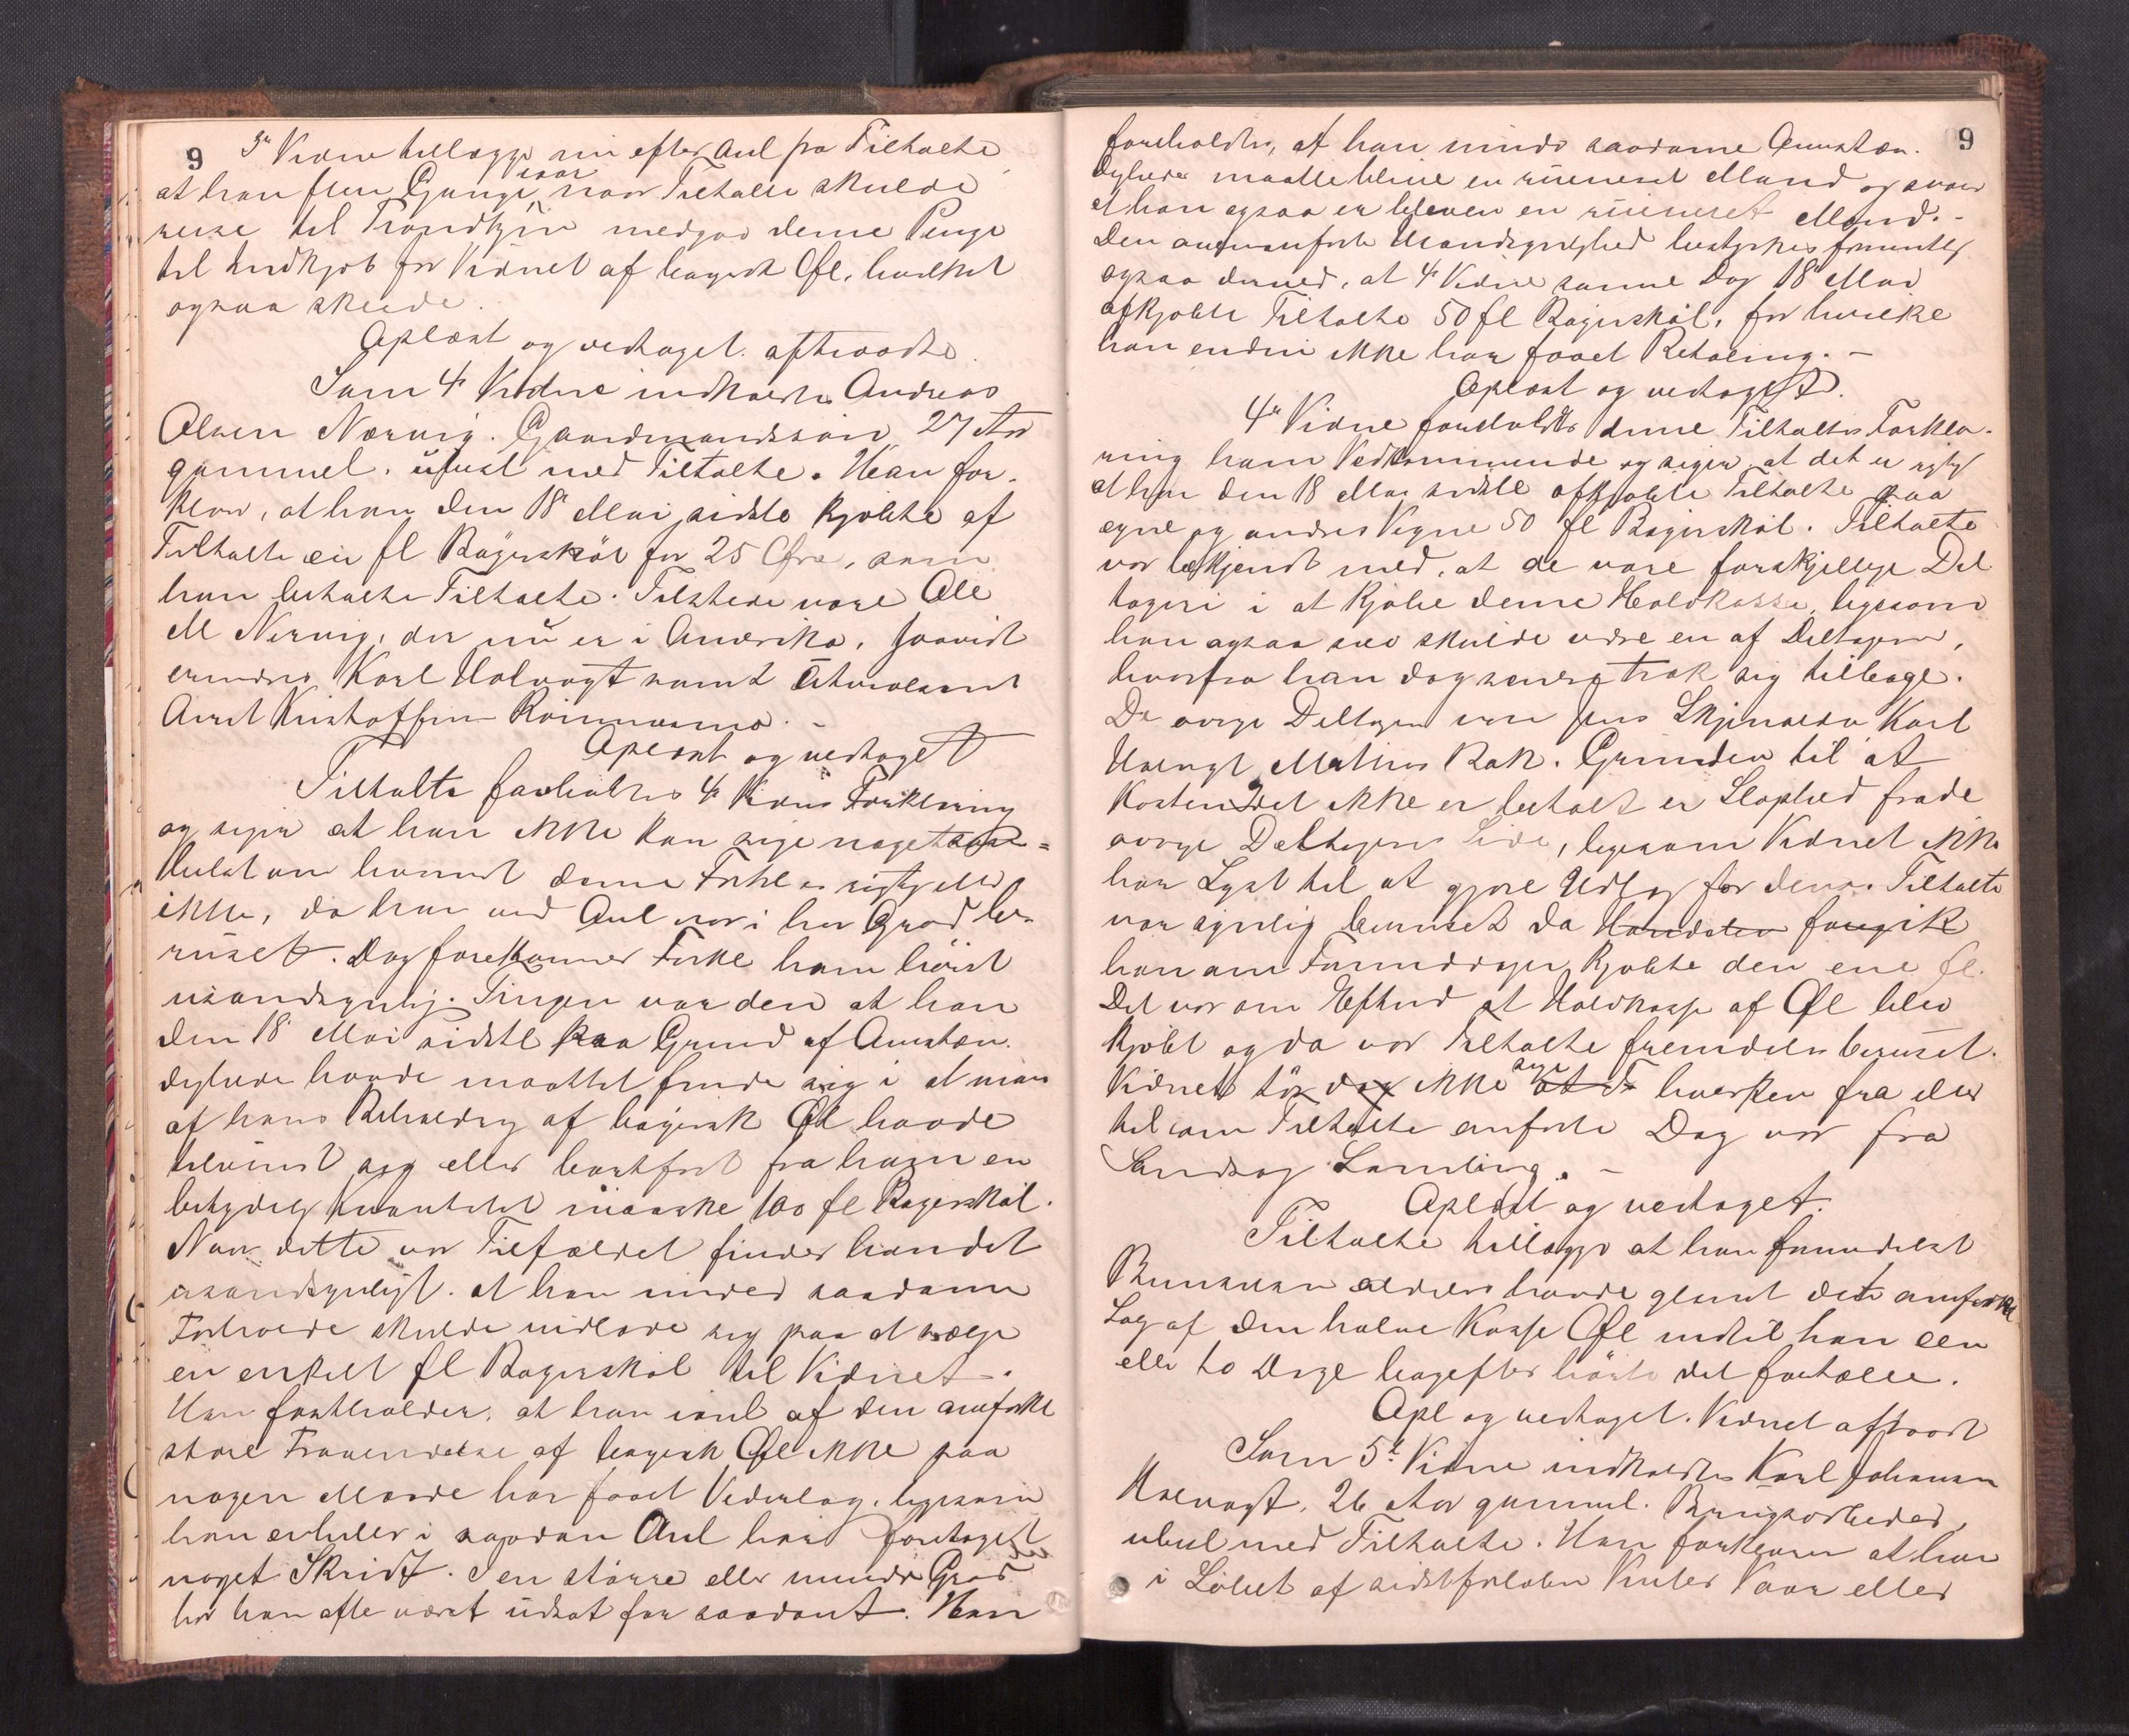 9
3die Vidne tillægger nu efter Anl fra Tiltalte
at han flere Gange iaar naar Tiltalte skulde
reise til Trondhjem medgav denne Penge
til Indkjøb for Vidnet af bayersk Øl, hvilket
ogsaa skeede.
Oplæst og vedtaget. aftraadte.
Som 4de Vidne indkaldtes Andreas
Olsen Nervig. Gaardmandssøn 27 Aar
gammel. ubesl med Tiltalte. Han for-
klarer, at han den 18de Mai sidste kjøbte af
Tiltalte ein fl Bayerskøl for 25 Øre, som
han betalte Tiltalte. Tilstede vare Ole
M Nervig, der nu er i Amerika, saavidt
erindres Karl Halvagt samt
Arnt Kristoffersen
Oplæst og vedtaget
Tiltalte foreholdtes 4de Vidnes Forklaring
og siger at han ikke kan sige noget
om hvorvidt denne Forkl er rigtig eller
ikke, da han ved Anl var i høi Grad be-
ruset. Dog forekommer Forkl ham høist
usandsynlig. Tingen var den at han
den 18de Mai sidstl paa Grund af Omstæn-
dighede havde maattet finde sig i at man
af hans Beholdng af bayersk Øl havde
tilvendt sig eller bortført fra ham en
betydelig Kvantitet maaske 100 fl Bayerskøl.
Naar dette var Tilfældet finder han det
usandsynligt. at han under saadanne
Forholde skulde indlade sig paa at sælge
en enkelt fl Bayerskøl til Vidnet.
Han fastholder, at han ial af den anførte
store Fravendelse af bayersk Øl ikke paa
nogen Maade har faaet Vederlag, ligesom
han enheller i saadan Anl har foretaget
noget Skridt. I en større eller mindre Grad
har han ofte været udsat for saadant. Han
9
foreholdtes, at han under saadanne Omstæn-
digheder maatte blive en ruineret Mand og svarer
at han ogsaa er bleven en ruineret Mand.-
Den ovenanførte Usandsynlighed bestyrkes formentlig
ogsaa derved, at 4de Vidne samme Dag 18de Mai
afkjøbte Tiltalte 50 fl Bayerskøl, for hvilke
han endnu ikke har faaet Betaling.-
Oplæst og vedtaget.
4de Vidne foreholdtes denne Tiltaltes Forkla-
ring ham Vedkommende og siger at det er rigtigt
at han den 18 Mai sidstl afkjøbte Tiltalte paa
egne og andres Vegne 50 fl Bayerskøl. Tiltalte
var bekjendt med, at de vare forskjellige Del
tagere i at kjøbe denne Halvkasse, ligesom
han ogsaa selv skulde være en af Deltagerne,
hvorfra han dog senere trak sig tilbage.
De øvrige Deltagere vare Jens Skjervold Karl
Halvagt Mathias Rok. Grunden til at
Kosten ikke er betalt er Slaphed fra de
øvrige Deltageres Side, ligesom Vidnet ikke
har Lyst til at gjøre Udlæg for dem. Tiltalte
var synlig beruset da Handelen foregik
han om Formiddagen kjøbte den ene fl.
Det var om Efterm at Halvkasse af Øl blev
kjøbt og da var Tiltalte fremdeles beruset.
Vidnet tør dog ikke sige at T hverken fra eller
til om Tiltalte anførte Dag var fra
Sands og Samling.-
Oplæst og vedtaget.
Tiltalte tillægger at han formedelst
Beruselsen aldeles havde glemt dette anførte
Salg af den halve Kasse Øl indtil han een
eller to Dage bagefter hørte det fortælle.
Opl og vedtaget. Vidnet aftraadt
Som 5te Vidne indkaldtes Karl Johansen
Halvagt, 26 Aar gammel. Brugsarbeider,
ubesl med Tiltalte. Han forklarer at han
i Løbet af sidstforløbne Vinter Vaar eller